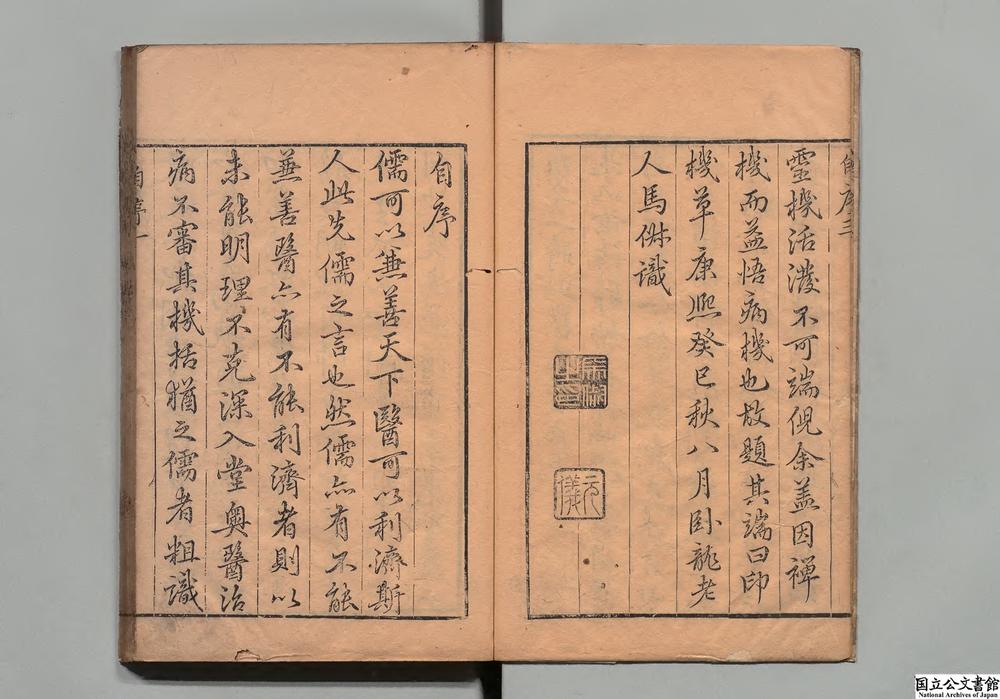 自序三
靈機活潑不可端倪余盖因禅
機而益悟病機也故題其端曰印
機草康熙癸巳秋八月卧龍老
人馬俶識
馬俶
之印
元
儀
自序
儒可以兼善天下醫可以利濟斯
人此先儒之言也然儒亦有不能
兼善醫亦有不能利濟者則以
未能明理不克深入堂奥醫治
病不審其機括猶之儒者粗識
自序一
国立公文書館
National Archives of Japan